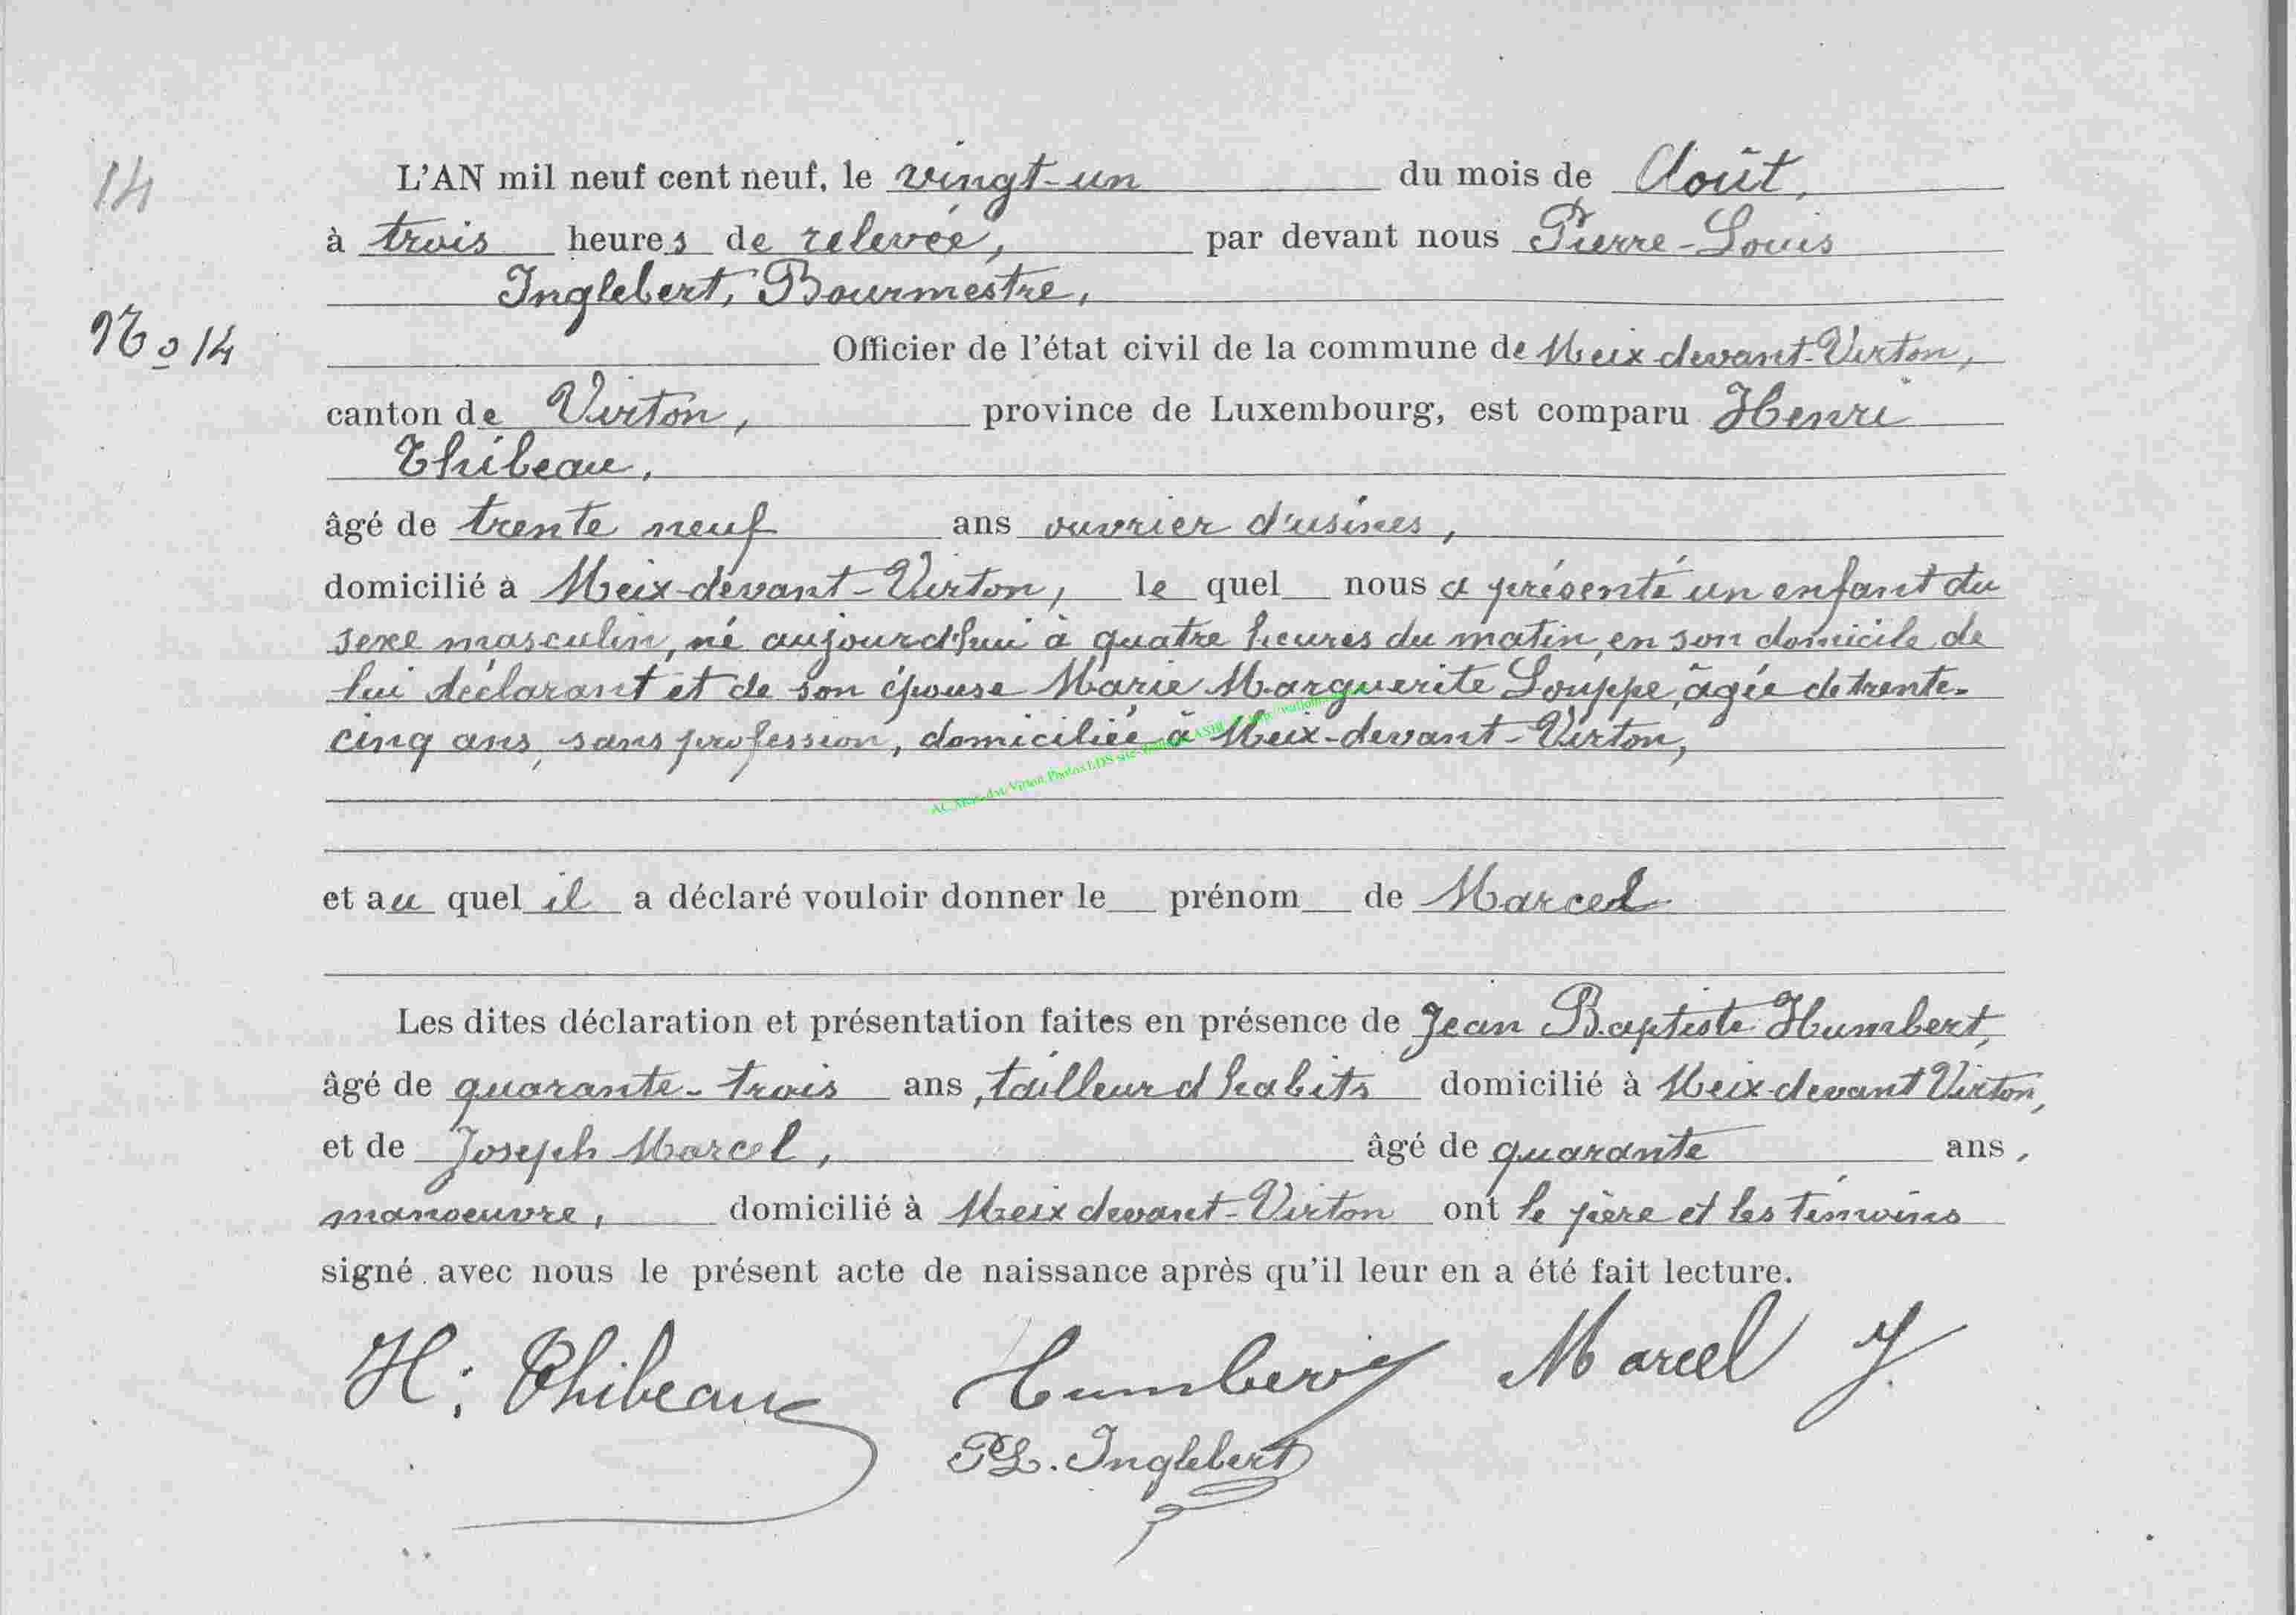 14
L'AN mil neuf cent neuf, le vingt-un du mois de Août,
à trois heures de relevée, par devant nous Pierre-Louis
Inglebert, Bourmestre,
No 14
Officier de l'état civil de la commune de Meix-devant-Virton,
canton de Virton, province de Luxembourg, est comparu Henri
Thibeau,
âgé de trente neuf ans ouvrier d'usines,
domicilié à Meix-devant-Virton, le quel nous a présenté un enfant du
sexe masculin, né aujourd'hui à quatre heures du matin, en son domicile de
lui déclarant et de son épouse Marie Marguerite Souppe, âgée de trente-
cinq ans, sans profession, domiciliée à Meix-devant-Virton,
et au quel il a déclaré vouloir donner le prénom de Marcel
Les dites déclaration et présentation faites en présence de Jean Baptiste Humbert,
âgé de quarante-trois ans, tailleur d'habits domicilié à Meix-devant Virton,
et de Joseph Marcel, âgé de quarante ans,
manoeuvre, domicilié à Meix devant-Virton ont le père et les témoins
signé avec nous le présent acte de naissance après qu'il leur en a été fait lecture.
H. Thibeau Humbert Marcel J.
PL. Inglebert